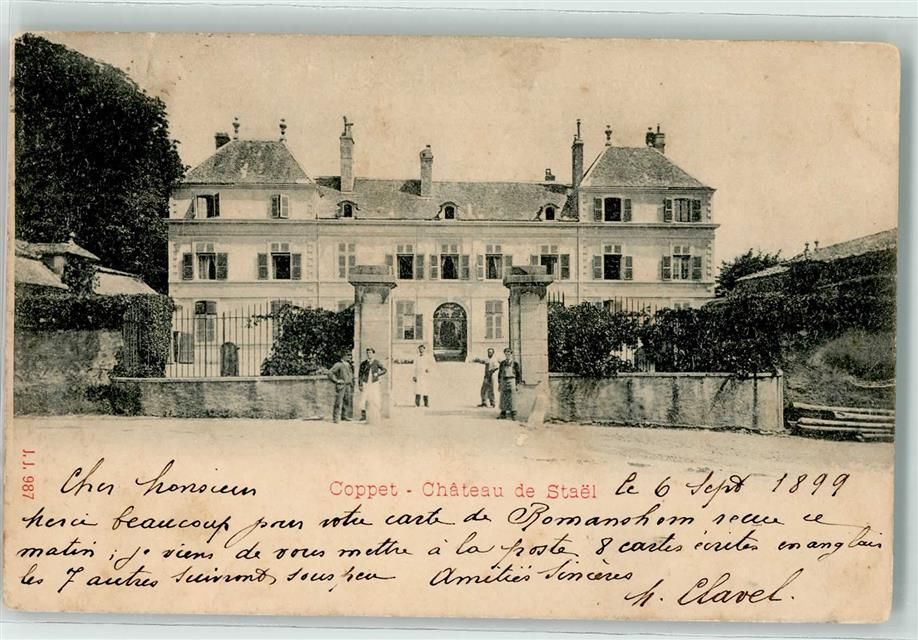 J.J. 987
Coppet - Château de Staël
Cher Monsieur le 6 Sept 1899
Merci beaucoup pour votre carte de Romanshorn recue ce
matin ; je viens de vous mettre à la poste 8 cartes écrites en anglais
les 7 autres suivront sous peu Amitiés Sincères
M. Clavel.